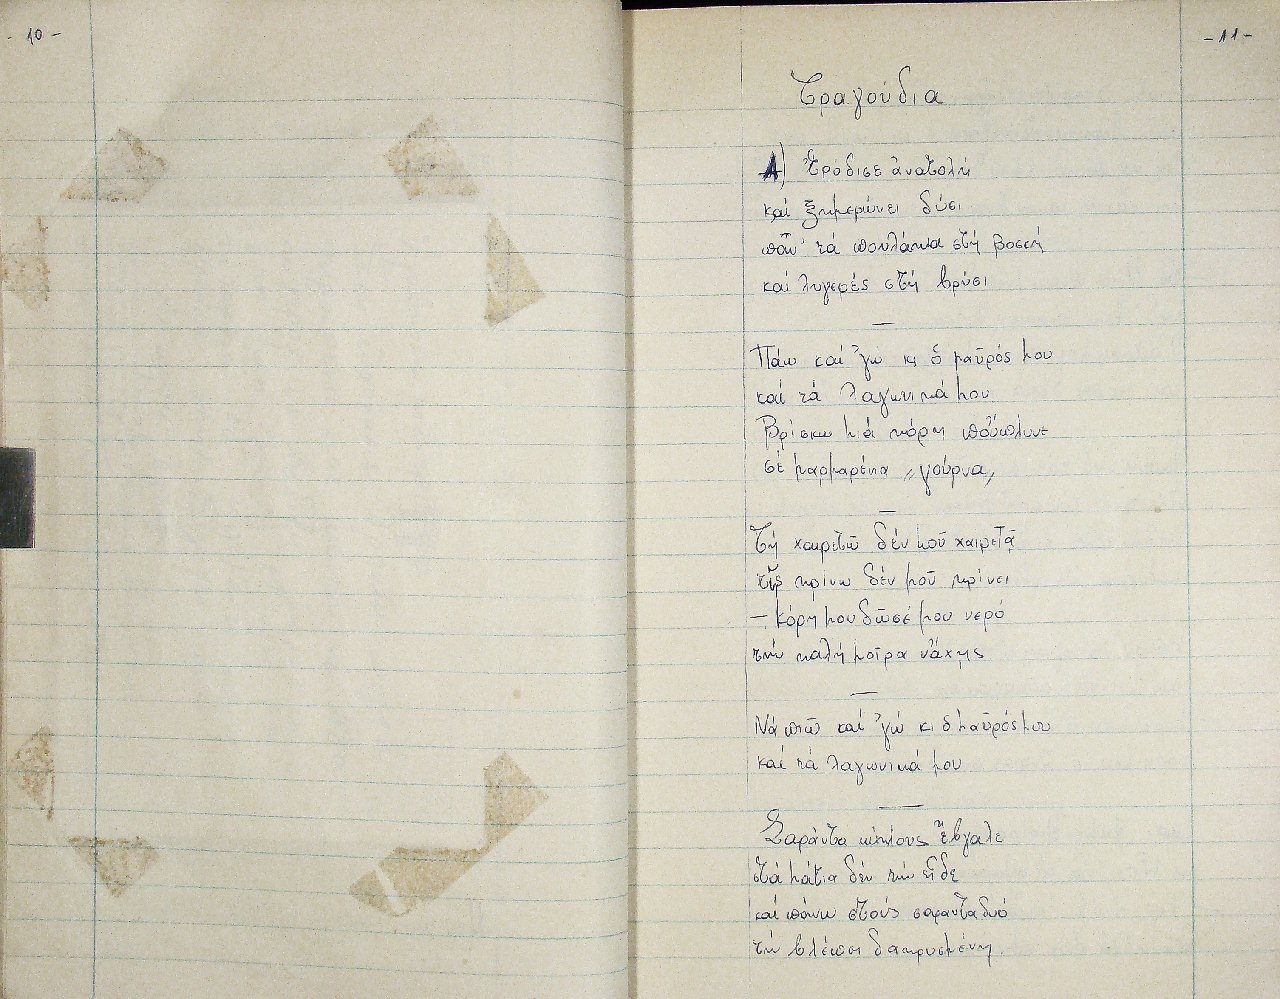 - 10 -
- 11 -
Τραγούδια
Α) Ἐρόδισε ἀνατολή
καί ξημερώνει δύσι
πᾶν' τά πουλάκια στή βοσκή
καί λυγερές στή βρύσι
—
Πάω καί 'γώ κι ὁ μαῦρός μου
καί τά λαγωνικά μου
Βρίσκω μιά κόρη πὄυπλυνε
σέ μαρμαρένια „γούρνα„
—
Τή χαιρετῶ δέν μοῦ χαιρετᾷ
τῆς κρίνω δέν μοῦ κρίνει
— Κόρη μου δῶσέ μου νερό
τήν καλή μοῖρα νἄχῃς
—
Νά πιῶ καί 'γώ κι ὁ μαῦρός μου
καί τά λαγωνικά μου
—
Σαράντα κίκλους ἔβγαλε
στά μάτια δέν τήν εἶδε
καί πάνω στούς σαραντα δυό
τήν βλέπει δακρυσμένη.